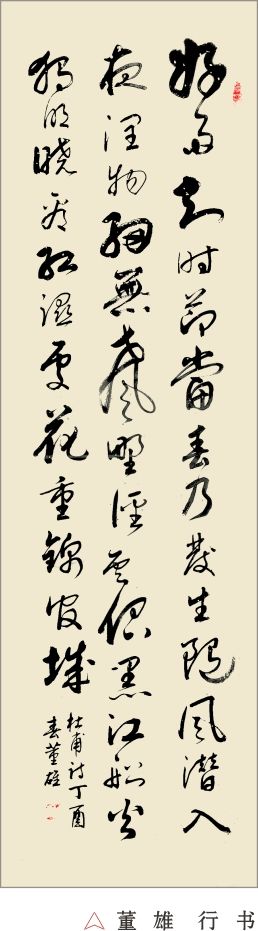 好雨知时节當春乃發生随风潜入
夜润物细無聲野径云俱黑江船火
獨明曉看红湿處花重錦官城
杜甫诗丁酉
春董雄
董雄行书